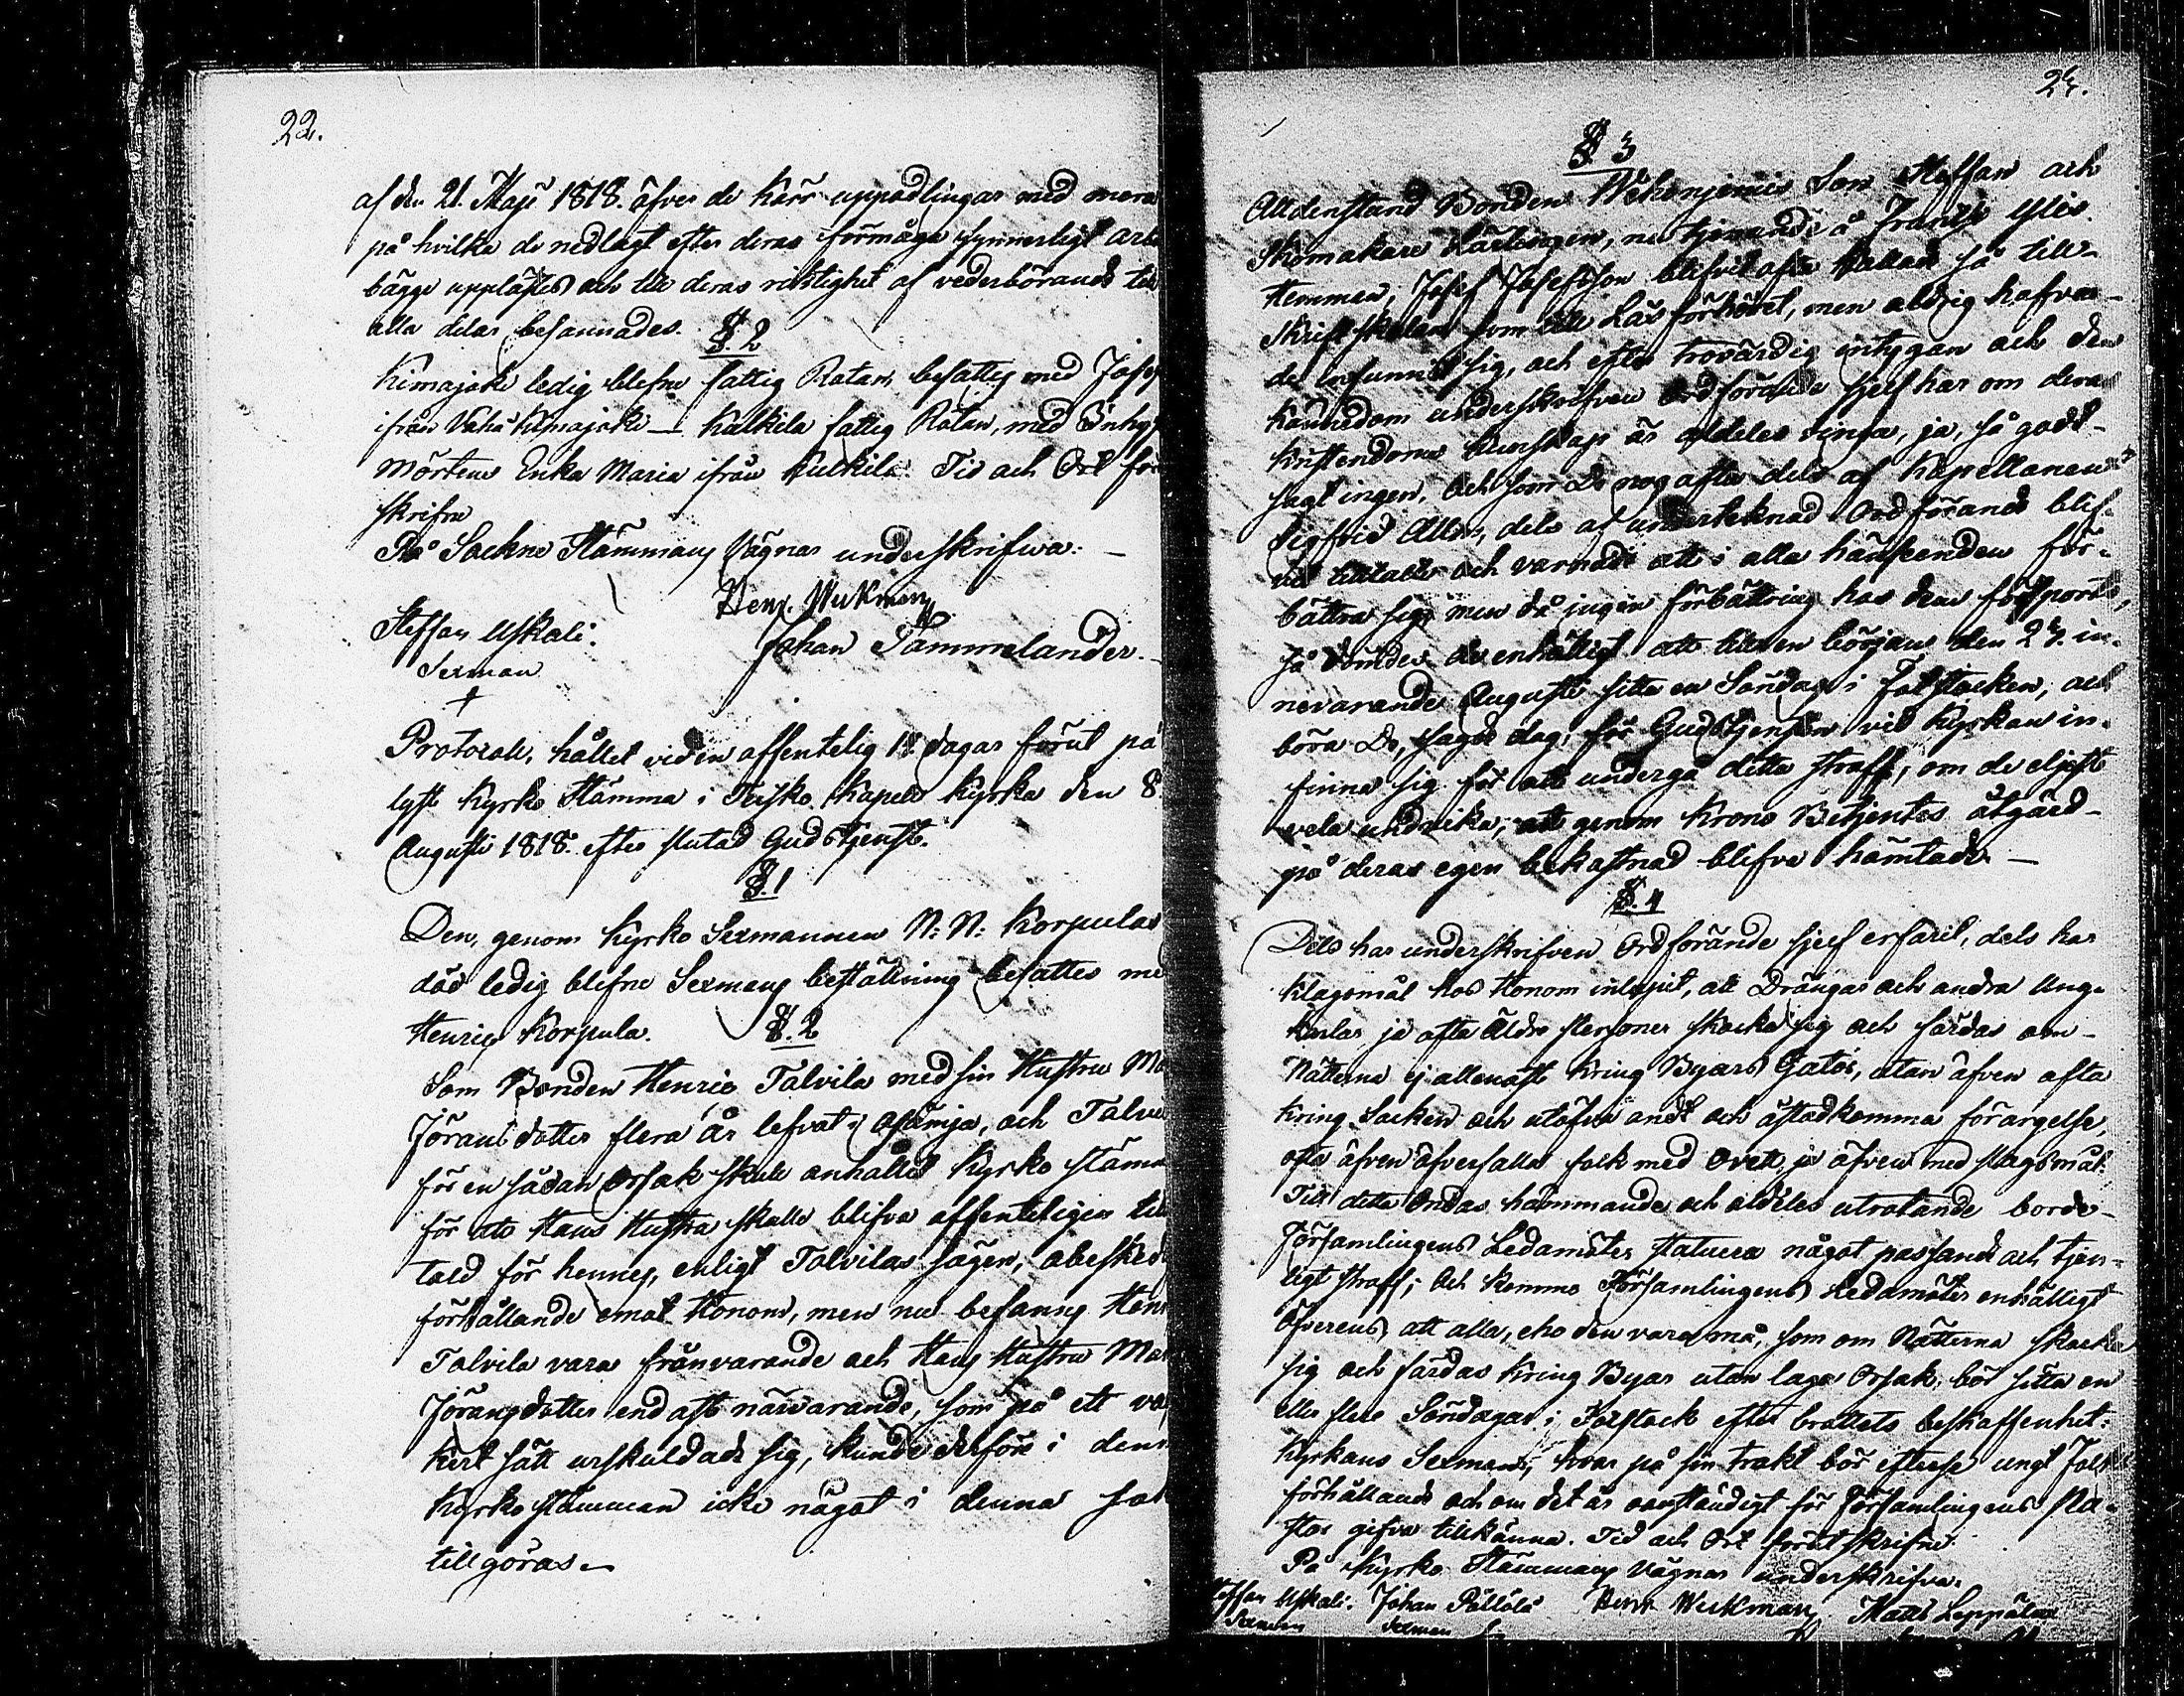 22.
af den 21. Maji 1818. öfver de Kärr uppodlingar med mera
på hvilka de nedlagt efter deras förmåga synnerligt arbe
bägge upplästes och till deras riktighet af vederbörande till
alla delar besannades.
§. 2
Kimajoki ledig blefne fattig Rotan, besattes med Josep
ifrån Vähä Kimajoki — Kulkila fattig Rotan, med Inhys
Mårtens Enka Maria ifrån Kulkila. Tid och Ort för
skrifne
På Sockne Stämmans Vägnar underskrifva: —
Henr. Wickman
Steffan Uskali.
Johan Tammelander.
Sexman
Protocoll, hållet vid en offentelig 14 dagar förut på
lyst Kyrko Stämma i Teisko Kapells Kyrka den 8
Augusti 1818. efter slutad Gudstjenst.
§. 1
Den, genom Kyrko Sexmannen N: N: Korpulas
död ledig blefne Sexmans beställning besattes med
Henric Korpula.
§. 2
Som Bonden Henric Talvila med sin Hustru Ma
Jöransdotter flera år lefvat i osämja, och Talvi
för en sådan Orsak skull anhållit Kyrko stäm
för att Hans Hustru skulle blifva offenteligen till
tald för hennes, enligt Talvilas sägen, obesked
förhållande emot Honom, men nu befanns Hen
Talvila vara frånvarande och Hans Hustru Mar
Jöransdotter endast närvarande, som på ett vac
kert sätt urskuldade sig, kunde derföre i denn
Kyrko stämman icke något i denna sak
tillgöras.—
24.
§ 3
Alldenstund Bonden Wehonjemis Son Steffan och
Skomakare Lärlingen, nu tjenande å Frantsi Ylis
Hemman, Josef Josefsson blifvit ofta kallade så till
Skriftskolan som till Läsförhöret, men aldrig hafva
de infunnit sig, och efter trovärdig intygan och den
kännedom underskrifven Ordförande sjelf har om deras
Kristendoms kunskap är aldeles ringa, ja, så godt
sagt ingen. Och som De nog ofta dels af Kapellanen
Sigfrid Allén, dels af underteknad Ordförande blif-
vit tilltalte och varnade att i alla hänseenden för-
bättra sig, men då ingen förbättring hos dem försports,
så dömdes de enhälligt att till en början den 23. in-
nevarande Augusti sitta en Söndag i Fotstocken, och
böra De, sagde dag, för Gudstjensten vid Kyrkan in-
finna sig för att undergå detta straff, om de eljest
vela undvika, att genom Krono Betjentes åtgärd
på deras egen bekostnad blifva hämtade. —
§. 4
Dels har underskrifven Ordförande sjelf erfarit, dels har
klagomål hos Honom inlupit, att Drängar och andra Ung-
karlar, ja ofta Äldre Personer skocka sig och färdas om
Nätterna ej allenast kring Byars Gator, utan äfven ofta
kring Socken och utöfva ondt och åstadkomma förargelse,
ofta äfven öfverfalla folk med Ovett, ja äfven med slagsmål.
Till detta Ondas hämmande och aldeles utrotande borde
Församlingens Ledamöter statuera något passande och tjen-
ligt straff; Och kommo Församlingens Ledamöter enhälligt
öfverens att alla, eho den vara må, som om Nätterna skocka
sig och färdas kring Byar utan laga Orsak, bör sitta en
eller flere Söndagar i Fotstock efter brottets beskaffenhet:
Kyrkans Sexmän, hvar på sin trakt bör efterse ungt Folks
förhållande och om det är oanständigt för Församlingens Pa-
stor gifva tillkänna. Tid och Ort förutskrifne.
På Kyrko Stämmans Vägnar underskrifva.
Steffan Uskali. Johan Pöllölä Henr Wickman Matts Leppälax
Sexman Sexman